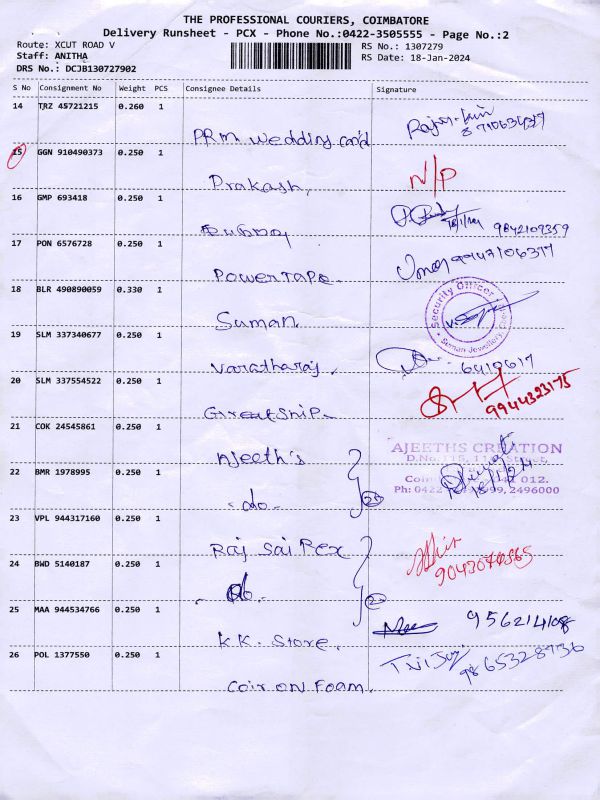 THE PROFESSIONAL COURIERS, COIMBATORE
Delivery Runsheet - PCX - Phone No.:0422-3505555 - Page No.:2
Route: XCUT ROAD V
RS No.: 1307279
Staff: ANITHA
RS Date: 18-Jan-2024
DRS No.: DCJB130727902
S No Consignment No Weight PCS Consignee Details Signature
14 TRZ 45721215 0.260 1
PRM Wedding card
15 GGN 910490373 0.250 1 N/P
Prakash,
16 GMP 693418 0.250 1 9842109359
17 PON 6576728 0.250 1
Powertape.
18 BLR 490890059 0.330 1 Security Officer
Suman Jewellery,
Suman.
19 SLM 337340677 0.250 1
Varatharaj.
20 SLM 337554522 0.250 1 9944323175
Greatship.
21 COK 24545861 0.250 1 AJEETHS CREATION
Ajeeth's
22 BMR 1978995 0.250 1 18/1/24
Ph: 0422 2496000
- do. - 2
23 VPL 944317160 0.250 1
Raj Sai Rex
24 BWD 5140187 0.250 1
- do. - 2
25 MAA 944534766 0.250 1
K.K. Store.
26 POL 1377550 0.250 1
Coir on Foam.